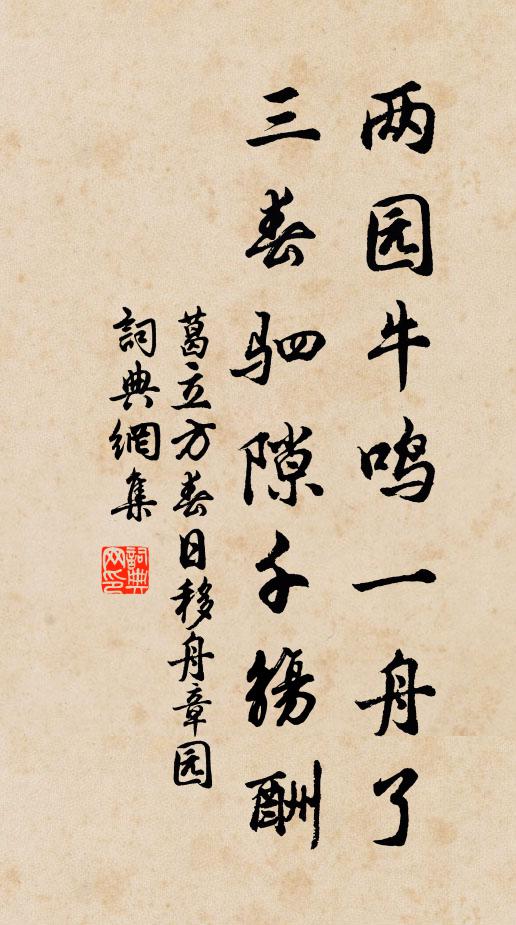 两园牛鸣一舟了
三春驷隙千觞酬
葛立方春日移舟章园
詞典網集
詞典网印